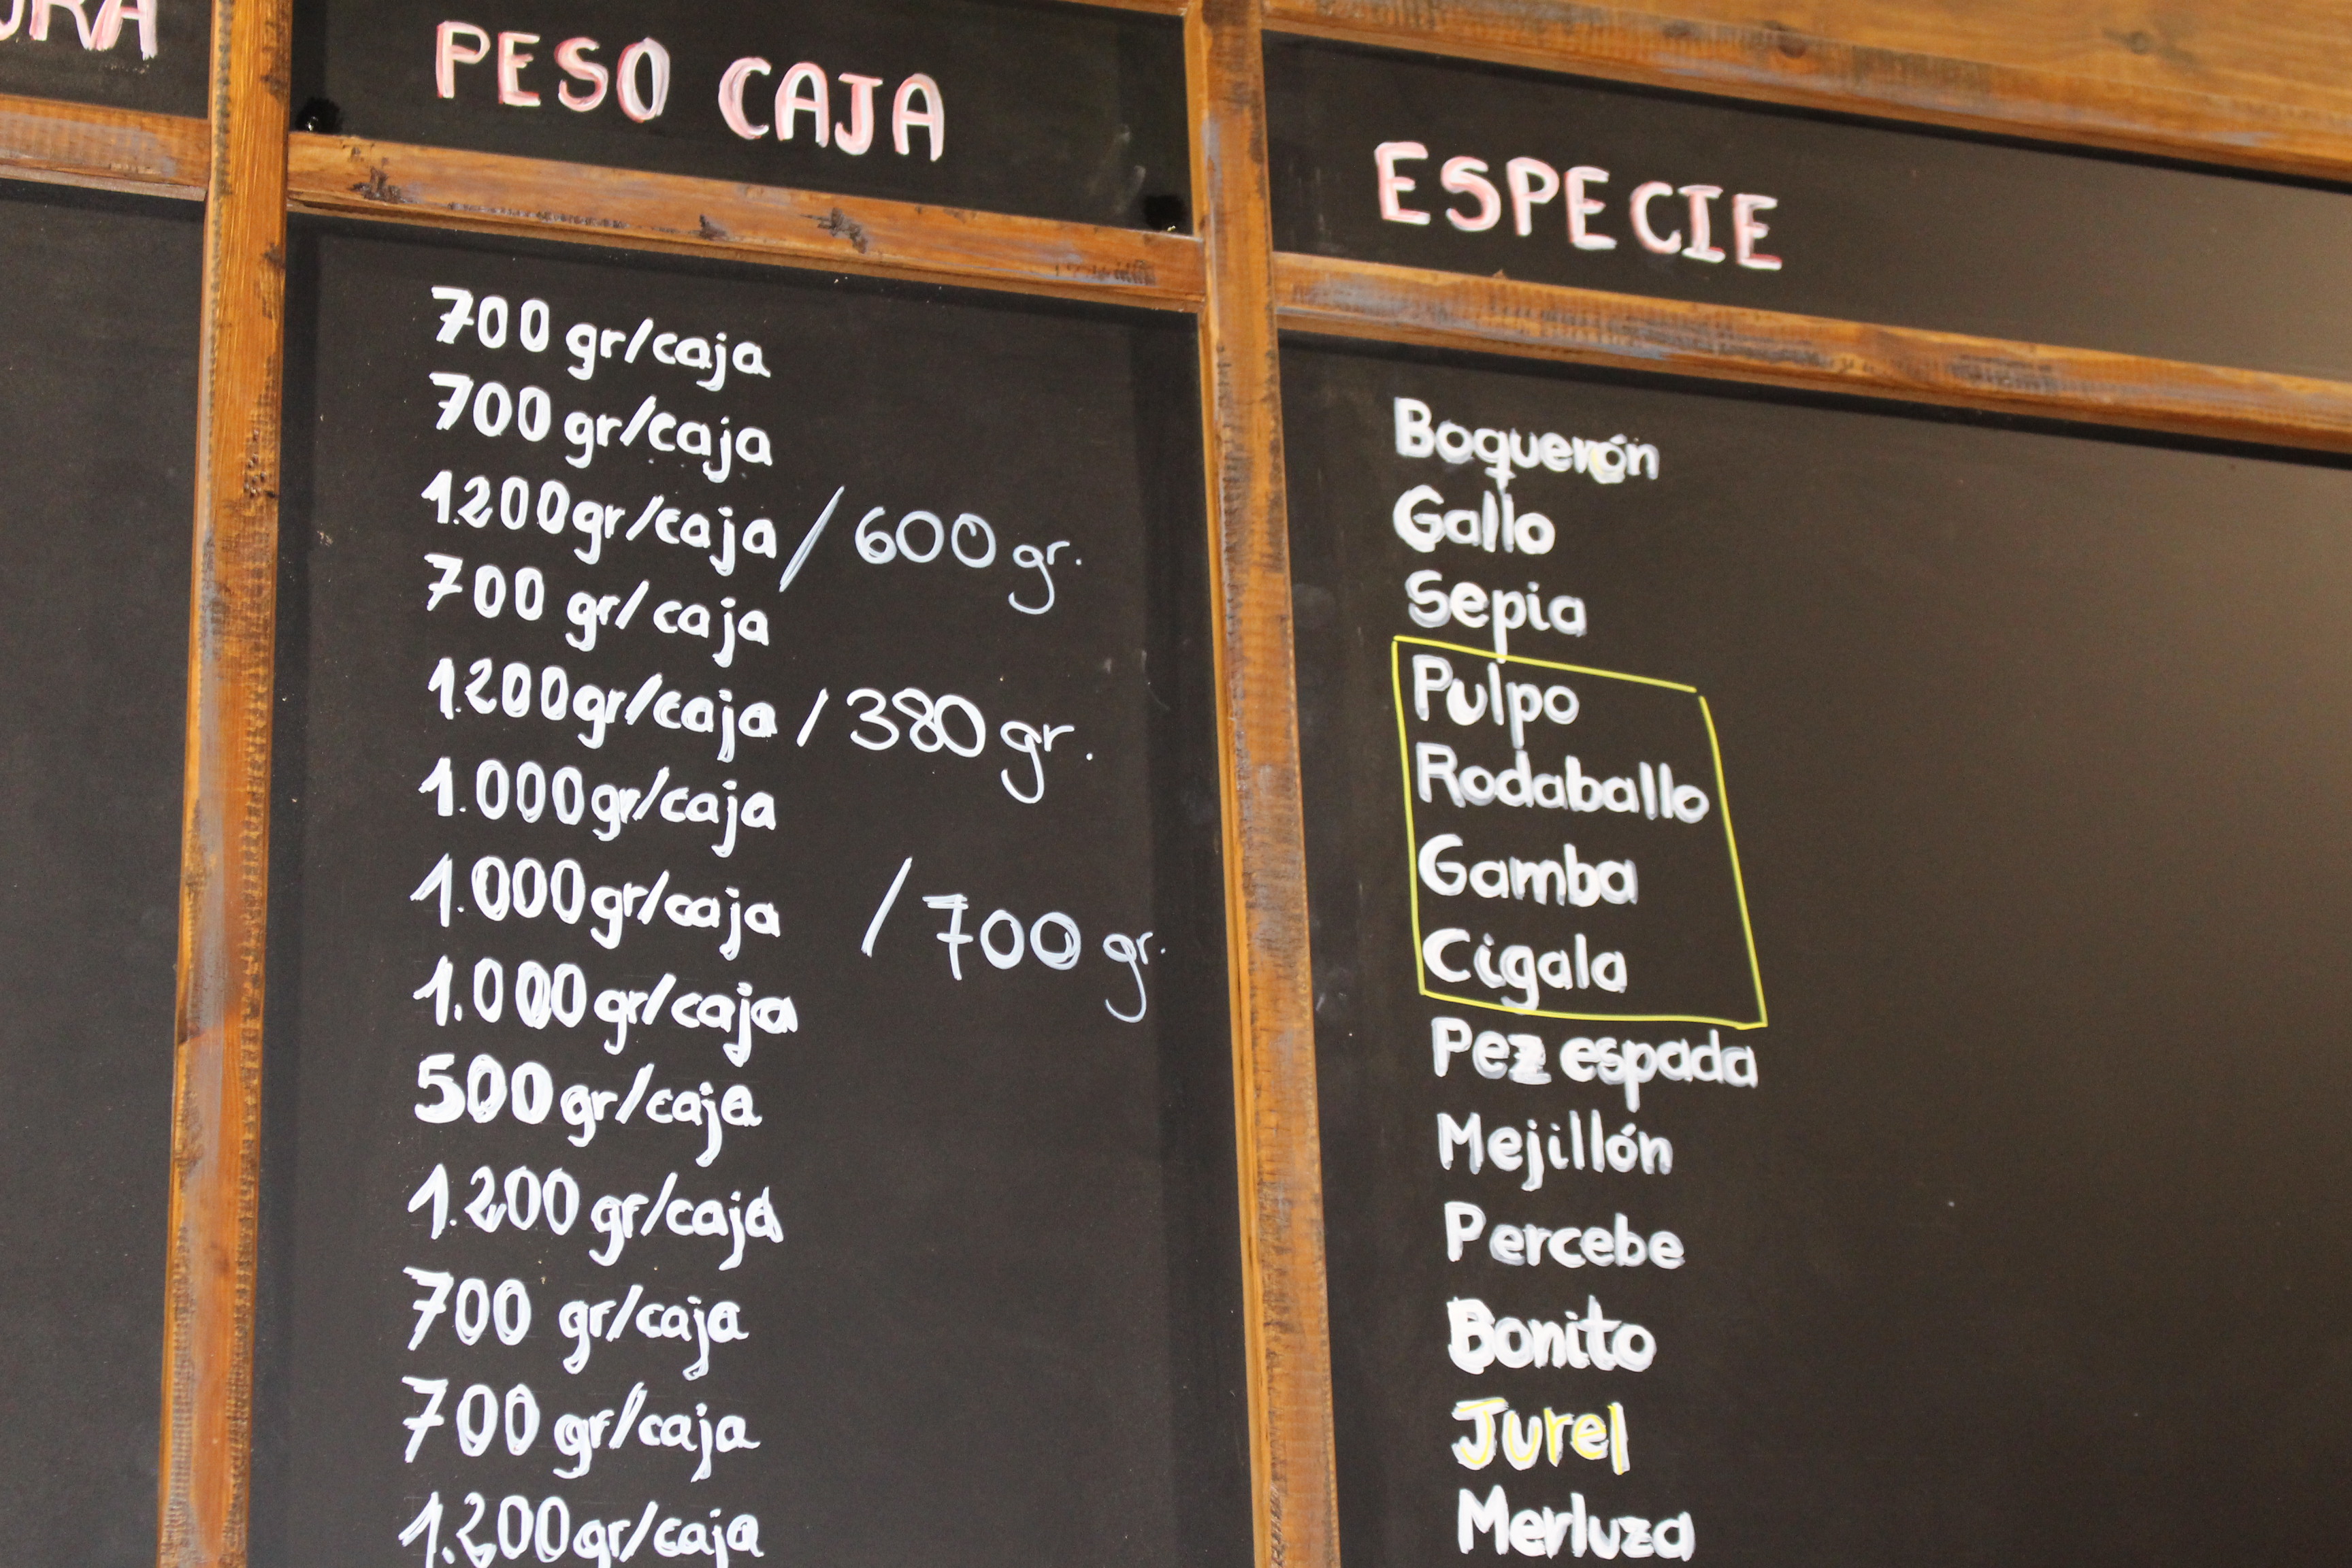 PESO CAJA
700 gr/caja
700 gr/caja
1.200gr/caja / 600 gr.
700 gr/caja
1.200gr/caja / 380 gr.
1.000gr/caja
1.000gr/caja / 700 gr.
1.000gr/caja
500gr/caja
1.200 gr/caja
700 gr/caja
700 gr/caja
1.200gr/caja
ESPECIE
Boquerón
Gallo
Sepia
Pulpo
Rodaballo
Gamba
Cigala
Pez espada
Mejillón
Percebe
Bonito
Jurel
Merluza